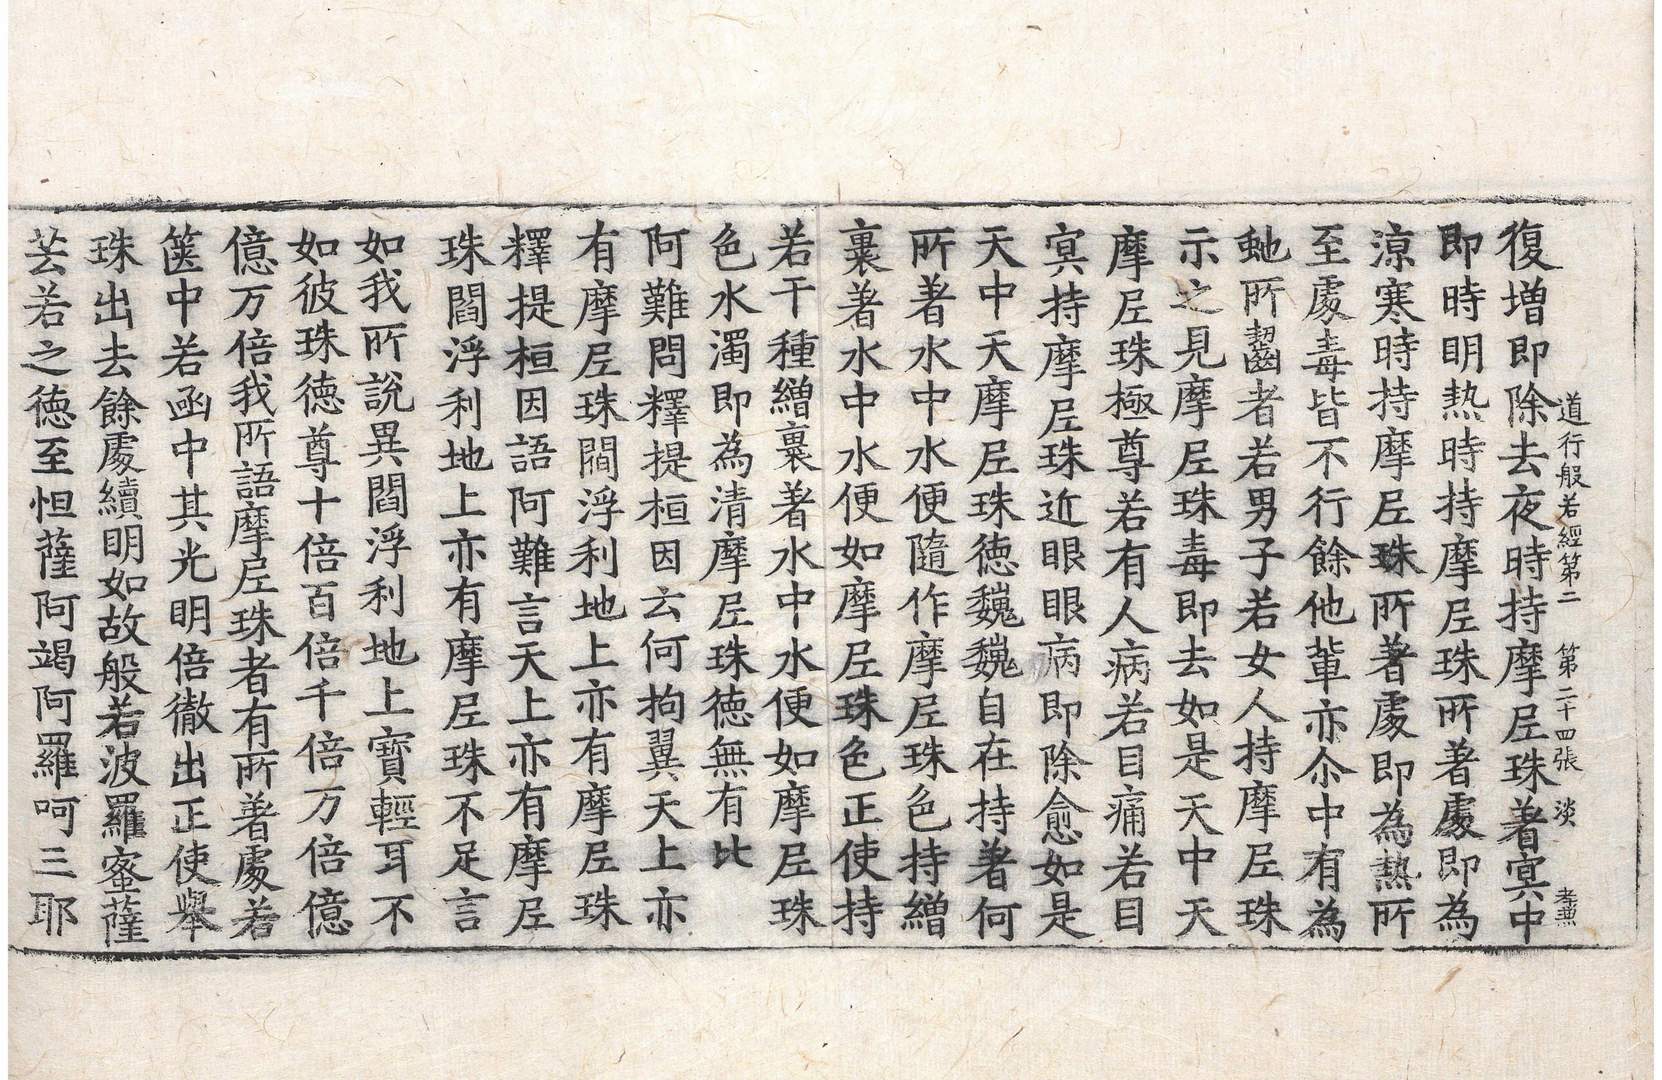 道行般若經第二 第二十四張 淡 孝兼
復增即除去夜時持摩尼珠著冥中
即時明熱時持摩尼珠所著處即為
涼寒時持摩尼珠所著處即為熱所
至處毒皆不行餘他輩亦尒中有為
虵所齧者若男子若女人持摩尼珠
示之見摩尼珠毒即去如是天中天
摩尼珠極尊若有人病若目痛若目
冥持摩尼珠近眼眼病即除愈如是
天中天摩尼珠德巍巍自在持著何
所著水中水便隨作摩尼珠色持繒
裹著水中水便如摩尼珠色正使持
若干種繒裹著水中水便如摩尼珠
色水濁即為清摩尼珠德無有比
阿難問釋提桓因云何拘翼天上亦
有摩尼珠閻浮利地上亦有摩尼珠
釋提桓因語阿難言天上亦有摩尼
珠閻浮利地上亦有摩尼珠不足言
如我所說異閻浮利地上寶輕耳不
如彼珠德尊十倍百倍千倍万倍億
億万倍我所語摩尼珠者有所著處若
篋中若函中其光明倍徹出正使舉
珠出去餘處續明如故般若波羅蜜薩
芸若之德至怛薩阿竭阿羅呵三耶